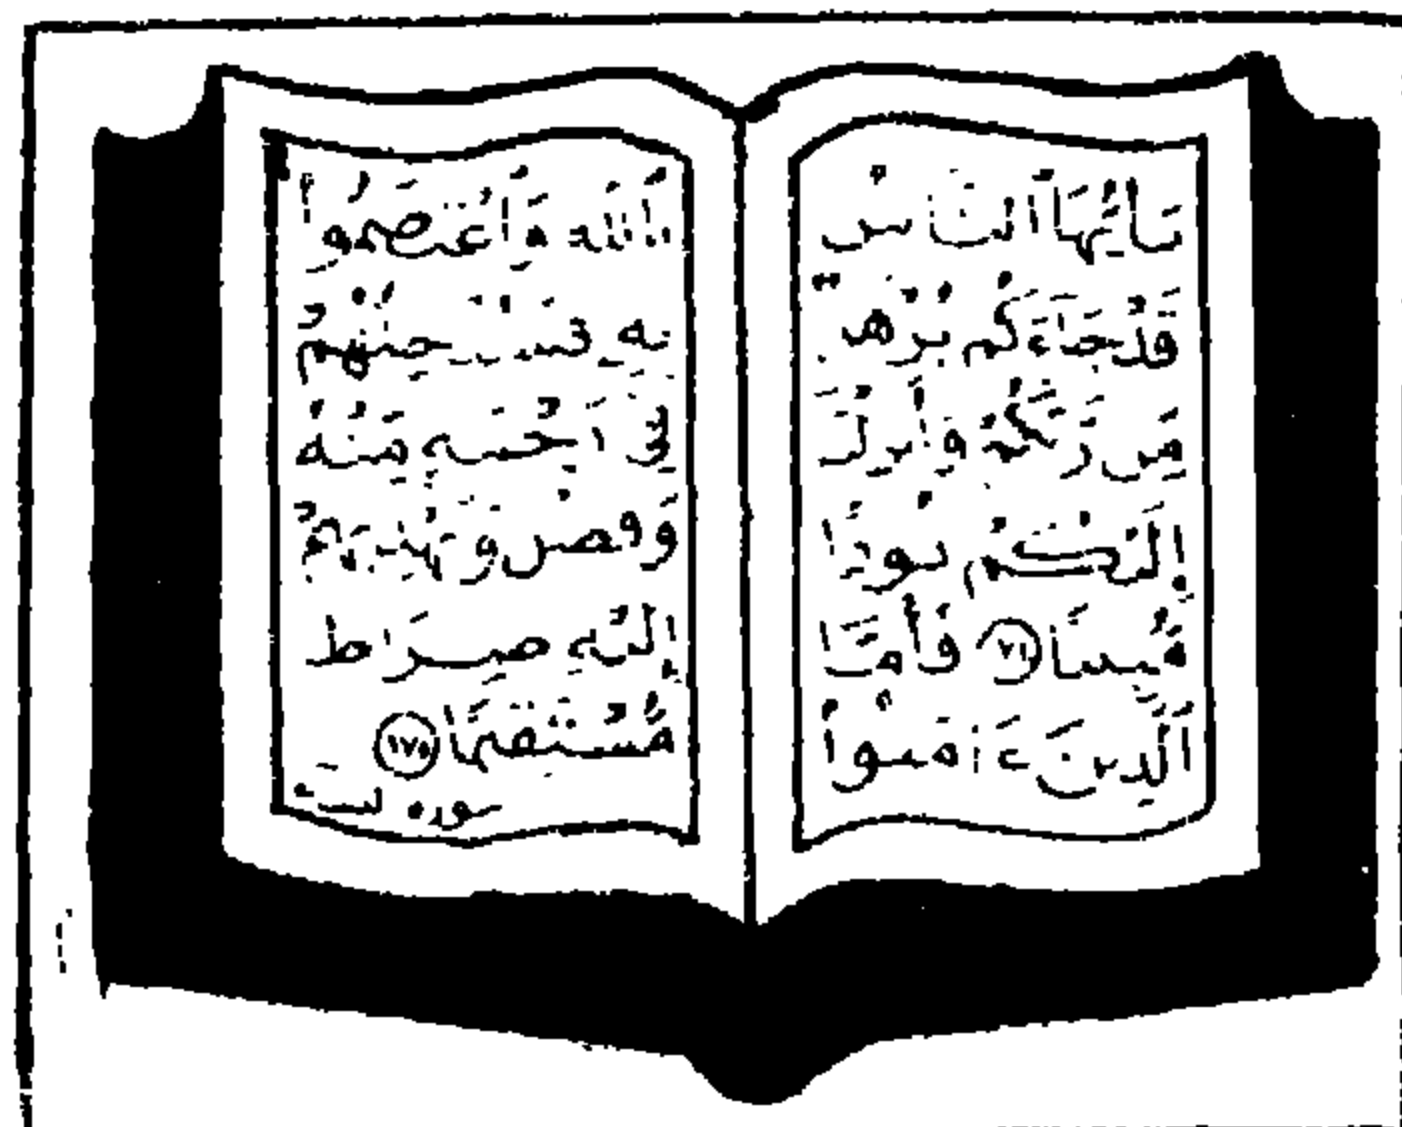 يَٰأَيُّهَا ٱلنَّاسُ
قَدْ جَآءَكُم بُرْهَٰنٌ
مِّن رَّبِّكُمْ وَأَنزَلْنَآ
إِلَيْكُمْ نُورًا
مُّبِينًا ١٧٤ فَأَمَّا
ٱلَّذِينَ ءَامَنُوا۟
بِٱللَّهِ وَٱعْتَصَمُوا۟
بِهِ فَسَيُدْخِلُهُمْ
فِى رَحْمَةٍ مِّنْهُ
وَفَضْلٍ وَيَهْدِيهِمْ
إِلَيْهِ صِرَٰطًا
مُّسْتَقِيمًا ١٧٥
سورة النساء